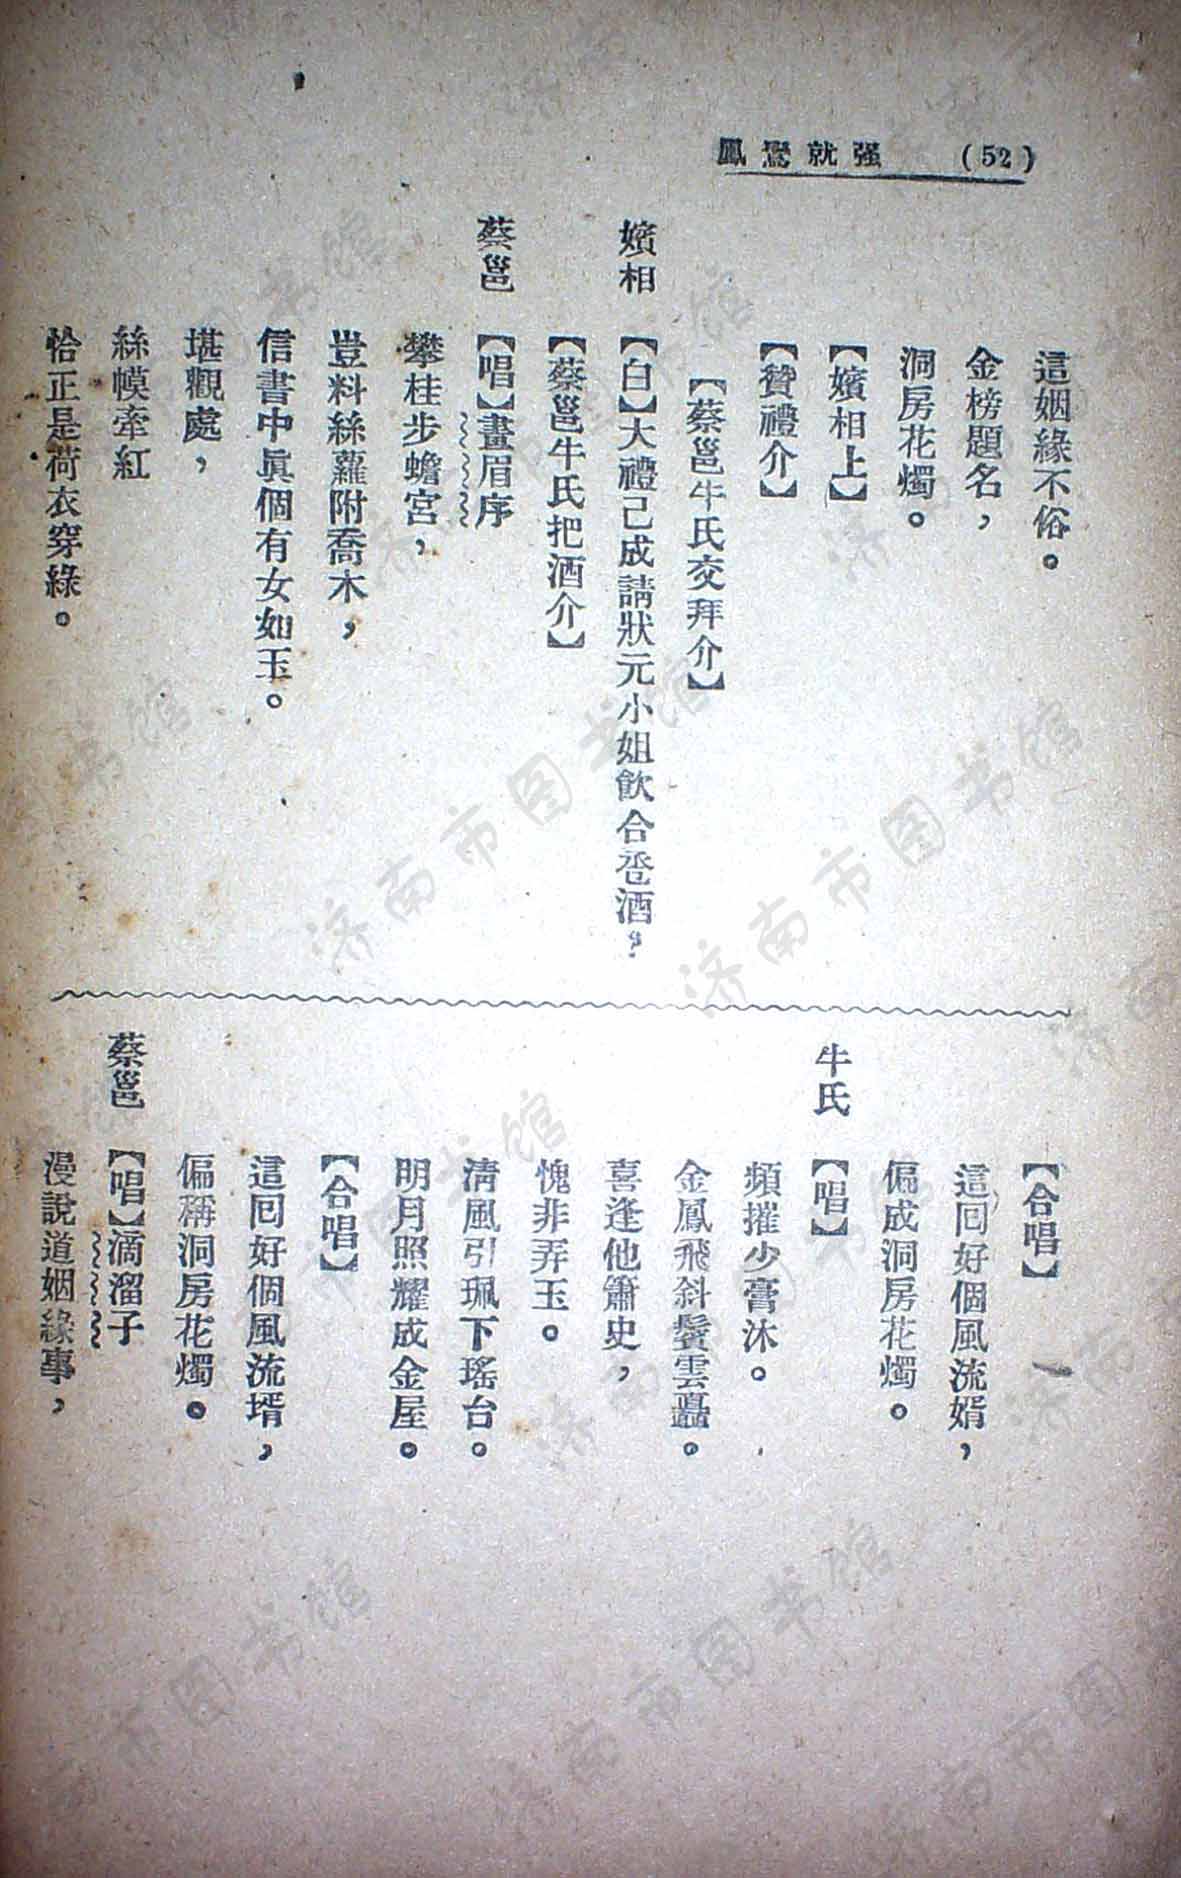 鳳鸞就强 (52)
這姻緣不俗。
金榜題名，
洞房花燭。
【嬪相上】
【贊禮介】
【蔡邕牛氏交拜介】
嬪相 【白】大禮己成請狀元小姐飲合卺酒？
【蔡邕牛氏把酒介】
蔡邕 【唱】畫眉序
攀桂步蟾宮，
豈料絲蘿附喬木，
信書中眞個有女如玉。
堪觀處，
絲幙牽紅
恰正是荷衣穿綠。
【合唱】
這囘好個風流婿，
偏成洞房花燭。
牛氏 【唱】
頻摧少膏沐。
金鳳飛斜鬢雲矗。
喜逢他簫史，
愧非弄玉。
清風引珮下瑤台。
明月照耀成金屋。
【合唱】
這囘好個風流壻，
偏稱洞房花燭。
蔡邕 【唱】滴溜子
漫說道姻緣事，
济南市图书馆